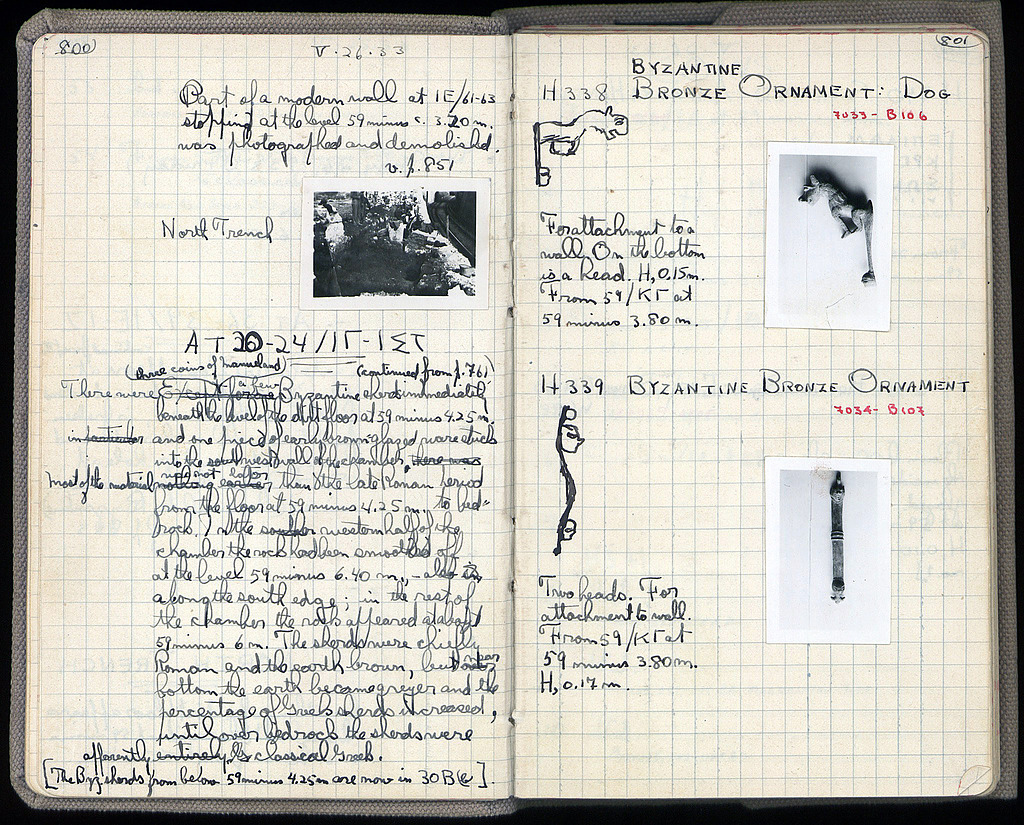 800
V·26·33
Part of a modern wall at IE/61-63
stopping at the level 59 minus c. 3.20 m.
was photographed and demolished.
v. p. 851
North Trench
AT 20-24/ΙΓ-ΙΣΤ
(three coins of Manueland) (continued from p. 761)
There were a few Byzantine sherds immediately
beneath the level of the dirt floor at 59 minus 4.25 m.
in particular and one piece of early brown-glazed ware stuck
into the southwest wall of the chamber, there was
Most of the material was not later nothing earlier than the late Roman period
from the floor at 59 minus 4.25 m. to bed-
rock. In the southern western half of the
chamber the rock had been smoothed off
at the level 59 minus 6.40 m., - also in
along the south edge; in the rest of
the chamber the rock appeared at about
59 minus 6 m. The sherds were chiefly
Roman and the earth brown, but near
bottom the earth became greyer and the
percentage of Greek sherds increased,
until over bedrock the sherds were
apparently entirely classical Greek.
[The Byz sherds from below 59 minus 4.25 m are now in 30 B].
801
BYZANTINE
H 338 BRONZE ORNAMENT: DOG
7033 - B106
For attachment to a
wall. On the bottom
is a head. H, 0.15 m.
From 59/ΚΓ at
59 minus 3.80 m.
H 339 BYZANTINE BRONZE ORNAMENT
7034 - B107
Two heads. For
attachment to wall.
From 59/ΚΓ at
59 minus 3.80 m.
H, 0.17 m.